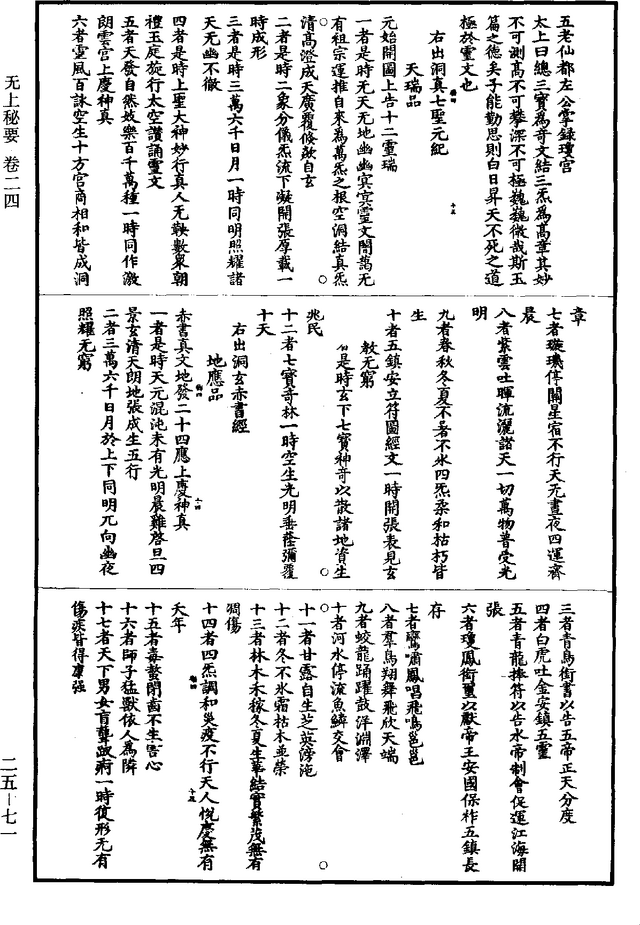 五老仙都左公掌録瓊宫
太上曰總三寶為奇文結三炁為高章其妙
不可測高不可攀深不可極巍巍微哉斯玉
篇之德矣子能勤思則白日昇天不死之道
極於靈文也
右出洞真七聖元紀
天瑞品
元始開圖上告十二靈瑞
一者是時无天无地幽幽冥冥靈文闇藹无
有祖宗運推自來為萬炁之根空洞結真炁
清高澄成天廣覆倏欻自玄
二者是時二象分儀炁流下凝開張厚載一
時成形
三者是時三萬六千日月一時同明照耀諸
天无幽不徹
四者是時上聖大神妙行真人无鞅數衆朝
禮玉庭旋行太空讚誦靈文
五者天發自然妓樂百千萬種一時同作激
朗雲宫上慶神真
六者靈風百詠空生十方宫商相和皆成洞
章
七者璇璣停關星宿不行天无晝夜四運齊
晨
八者紫雲吐暉流灑諸天一切萬物普受光
明
九者春秋冬夏不暑不氷四炁柔和枯朽皆
生
十者五鎮安立符圖經文一時開張表見玄
教无窮
是時玄下七寶神奇以散諸地資生
兆民
十二者七寶奇林一時空生光明垂蔭彌覆
十天
右出洞玄赤書經
地應品
赤書真文地發二十四應上慶神真
一者是時天元混沌未有光明晨難啓旦四
景玄清天朗地張成生五行
二者三萬六千日月於上下同明兀向幽夜
照耀无窮
三者青鳥銜書以告五帝正天分度
四者白虎吐金安鎮五靈
五者青龍捧符以告水帝制會促運江海開
張
六者瓊鳳銜璽以獻帝王安國保祚五鎮長
存
七者鸞嘯鳳唱飛鳴邕邕
八者羣鳥翔舞飛欣天端
九者蛟龍踊躍鼓洋淵澤
十者河水停流魚鱗交會
十一者甘露自生芝英滂沲
十二者冬不氷霜枯木並榮
十三者林木禾稼冬夏生華結實繁茂無有
凋傷
十四者四炁調和災疫不行天人悦慶無有
夭年
十五者毒螫閉齒不生害心
十六者師子猛獸依人為隣
十七者天下男女盲聾跛痾一時復形无有
傷疾皆得康强
无上秘要 卷二四
二五—七一